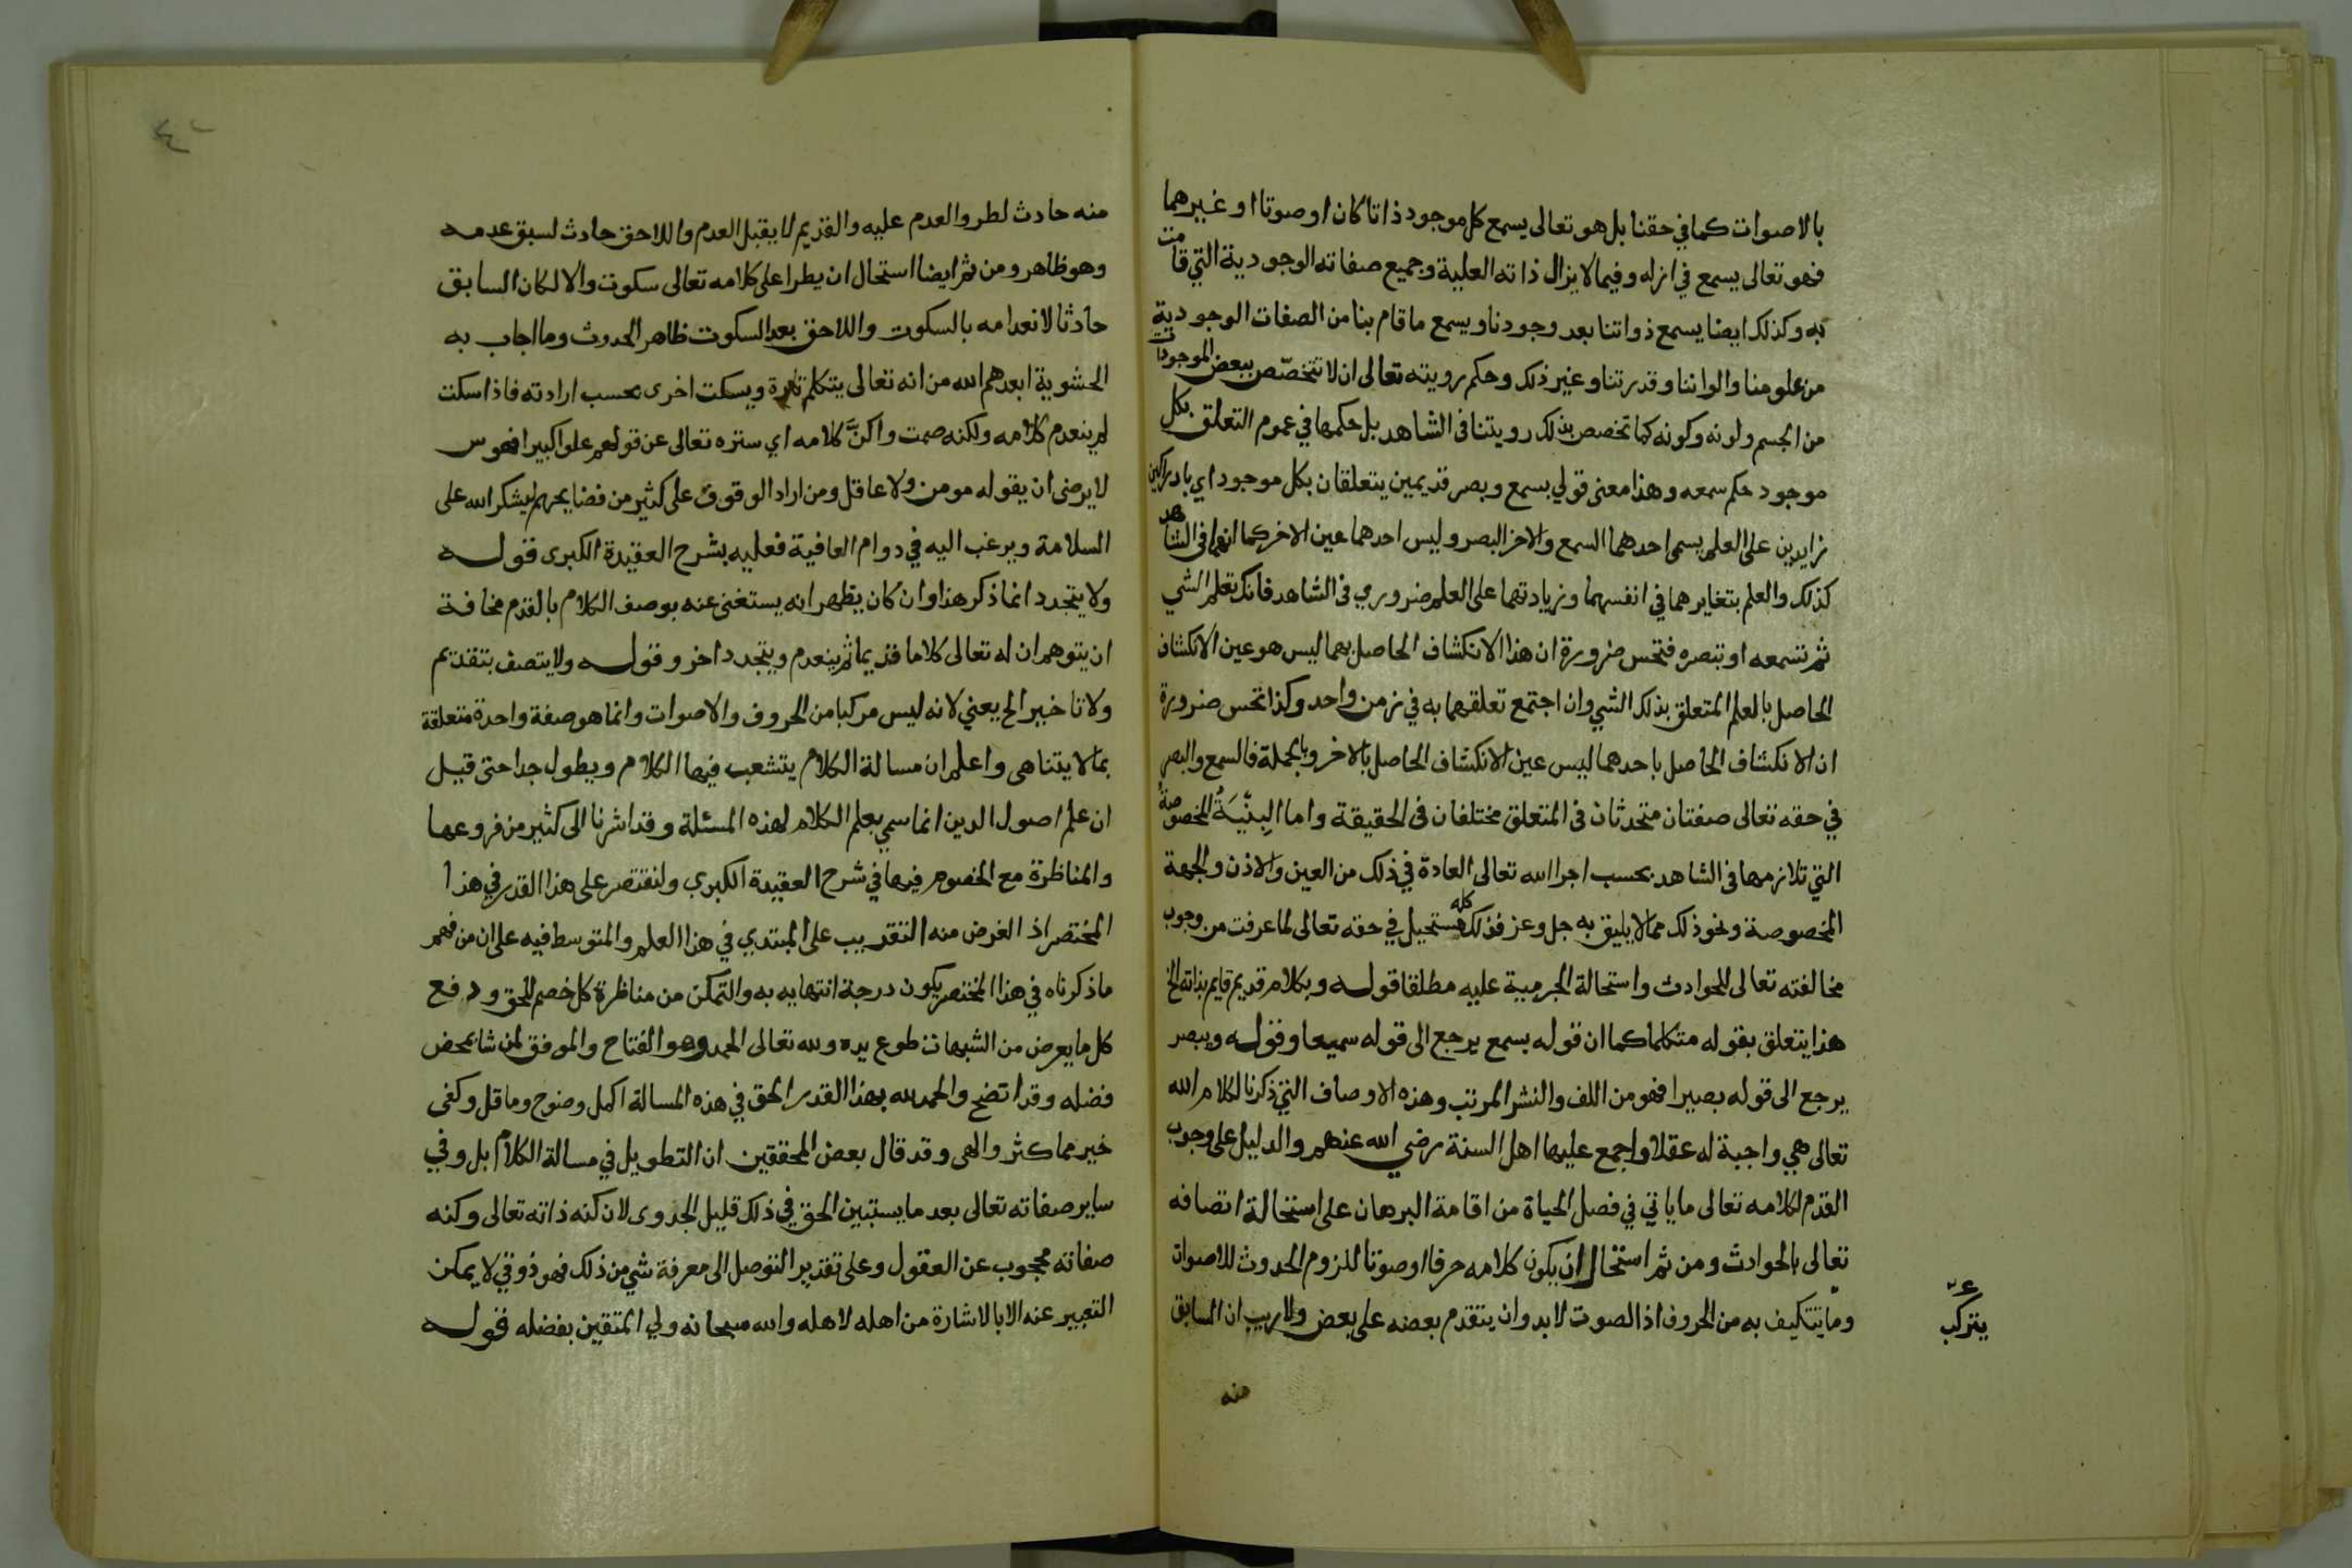 بالاصوات كما في حقنا بل هو تعالى يسمع كل موجود ذاتا كان او صوتا او غيرهما
فهو تعالى يسمع في ازله وفيما لا يزال ذاته العلية وجميع صفاته الوجودية التي قامت
به وكذلك ايضا يسمع ذواتنا بعد وجودنا ويسمع ما قام بنا من الصفات الوجودية
من علومنا والواننا وقدرتنا وغير ذلك وحكم رويته تعالى ان لا تتخصّص ببعض الموجودات
من الجسم ولونه وكونه كما تخصص بذلك رويتنا في الشاهد بل حكمها في عموم التعلق بكل
موجود حكم سمعه وهذا معنى قولي بسمع وبصر قديمين يتعلقان بكل موجود اي بادراكين
زايدين على العلم يسمى احدهما السمع والاخر البصر وليس احدهما عين الاخر كما انهما في الشاهد
كذلك والعلم بتغايرهما في انفسهما وزيادتهما على العلم ضروري في الشاهد فانك تعلم الشي
ثم تسمعه او تبصره فتحس ضرورة ان هذا الانكشاف الحاصل بهما ليس هو عين الانكشاف
الحاصل بالعلم المتعلق بذلك الشي وان اجتمع تعلقهما به في زمن واحد وكذا تحس ضرورة
ان الانكشاف الحاصل باحدهما ليس عين الانكشاف الحاصل بالاخر وبالجملة فالسمع والبصر
في حقه تعالى صفتان متحدثان في المتعلق مختلفان في الحقيقة واما البِنْيَةُ المخصوصة
التي تلازمها في الشاهد بحسب اجرا الله تعالى العادة في ذلك من العين والاذن والجهة
المخصوصة ونحو ذلك مما لا يليق به جل وعز فذلك كله مستحيل في حقه تعالى لما عرفت من وجوب
مخالفته تعالى للحوادث واستحالة الجرمية عليه مطلقا قوله وبكلام قديم قايم بذاته الخ
هذا يتعلق بقوله متكلما كما ان قوله بسمع يرجع الى قوله سميعا وقوله وببصر
يرجع الى قوله بصيرا فهو من اللف والنشر المرتب وهذه الاوصاف التي ذكرنا لكلام الله
تعالى هي واجبة له عقلا واجمع عليها اهل السنة رضي الله عنهم والدليل على وجوب
القدم لكلامه تعالى ما ياتي في فصل الحياة من اقامة البرهان على استحالة اتصافه
تعالى بالحوادث ومن ثم استحال ان يكون كلامه حرفا او صوتا للزوم الحدوث للاصوات
وما يتكيف به من الحروف اذ الصوت لا بد وان يتقدم بعضه على بعض ولا ريب ان السابق
يتركب
منه
٤٢
منه حادث لطرو العدم عليه والقديم لا يقبل العدم واللاحق حادث لسبق عدمه
وهو ظاهر ومن ثم ايضا استحال ان يطرا على كلامه تعالى سكوت والا لكان السابق
حادثا لانعدامه بالسكوت واللاحق بعد السكوت ظاهر الحدوث وما اجاب به
الحشوية ابعدهم الله من انه تعالى يتكلم تارة ويسكت اخرى بحسب ارادته فاذا سكت
لم ينعدم كلامه ولكنه صمت واكنَّ كلامه اي ستره تعالى عن قولهم علوا كبيرا فهوس
لا يرضى ان يقوله مومن ولا عاقل ومن اراد الوقوف على كثير من فضايحهم ليشكر الله على
السلامة ويرغب اليه في دوام العافية فعليه بشرح العقيدة الكبرى قوله
ولا يتجدد انما ذكر هذا وان كان يظهر انه يستغنى عنه بوصف الكلام بالقدم مخافة
ان يتوهم ان له تعالى كلاما قديما ثم ينعدم ويتجدد اخر وقوله ولا يتصف بتقديم
ولا تاخير الخ يعني لانه ليس مركبا من الحروف والاصوات وانما هو صفة واحدة متعلقة
بما لا يتناهى واعلم ان مسالة الكلام يتشعب فيها الكلام ويطول جدا حتى قيل
ان علم اصول الدين انما سمي بعلم الكلام لهذه المسئلة وقد اشرنا الى كثير من فروعها
والمناظرة مع الخصوم فيها في شرح العقيدة الكبرى ولنقتصر على هذا القدر في هذا
المختصر اذ الغرض منه التقريب على المبتدي في هذا العلم والمتوسط فيه على ان من فهم
ما ذكرناه في هذا المختصر يكون درجة انتهايه به والتمكن من مناظرة كل خصم للحق ودفع
كل ما يعرض من الشبهات طوع يده ولله تعالى الحمد وهو الفتاح والموفق لمن شا بمحض
فضله وقد اتضح والحمد لله بهذا القدر الحق في هذه المسالة اكمل وضوح وما قل وكفى
خير مما كثر والهى وقد قال بعض المحققين ان التطويل في مسالة الكلام بل وفي
ساير صفاته تعالى بعد ما يستبين الحق في ذلك قليل الجدوى لان كنه ذاته تعالى وكنه
صفاته محجوب عن العقول وعلى تقدير التوصل الى معرفة شي من ذلك فهو ذوقي لا يمكن
التعبير عنه الا بالاشارة من اهله لاهله والله سبحانه ولي المتقين بفضله قوله